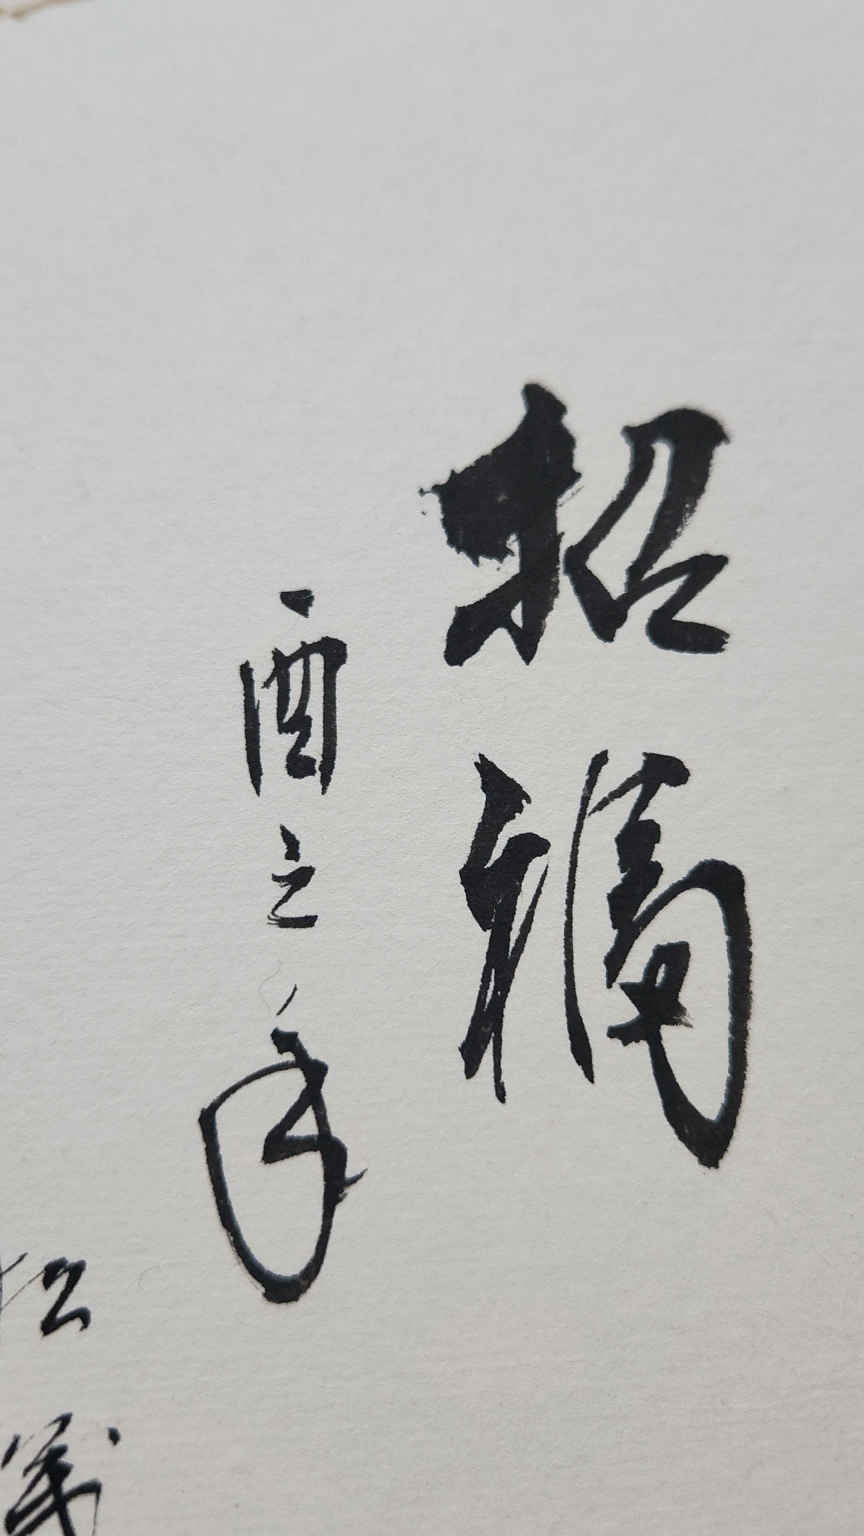 招福
酉之年